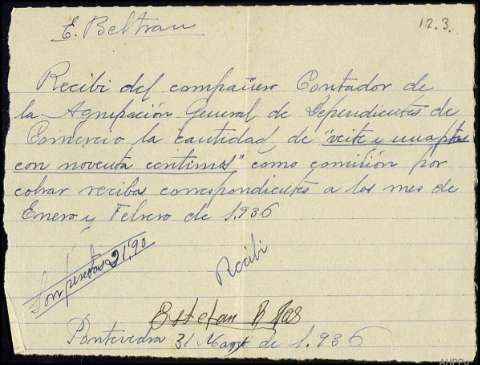 E. Beltran
12.3.
Recibi del compañero Contador de
la Agrupación General de Dependientes de
Comercio la cantidad de "veite y una ptas
con noventa centimos" como comisión por
cobrar recibos correspondientes a los mes de
Enero y Febrero de 1.936
Son pesetas 21,90
Recibi
Esteban
Pontevedra 31 de 1.936